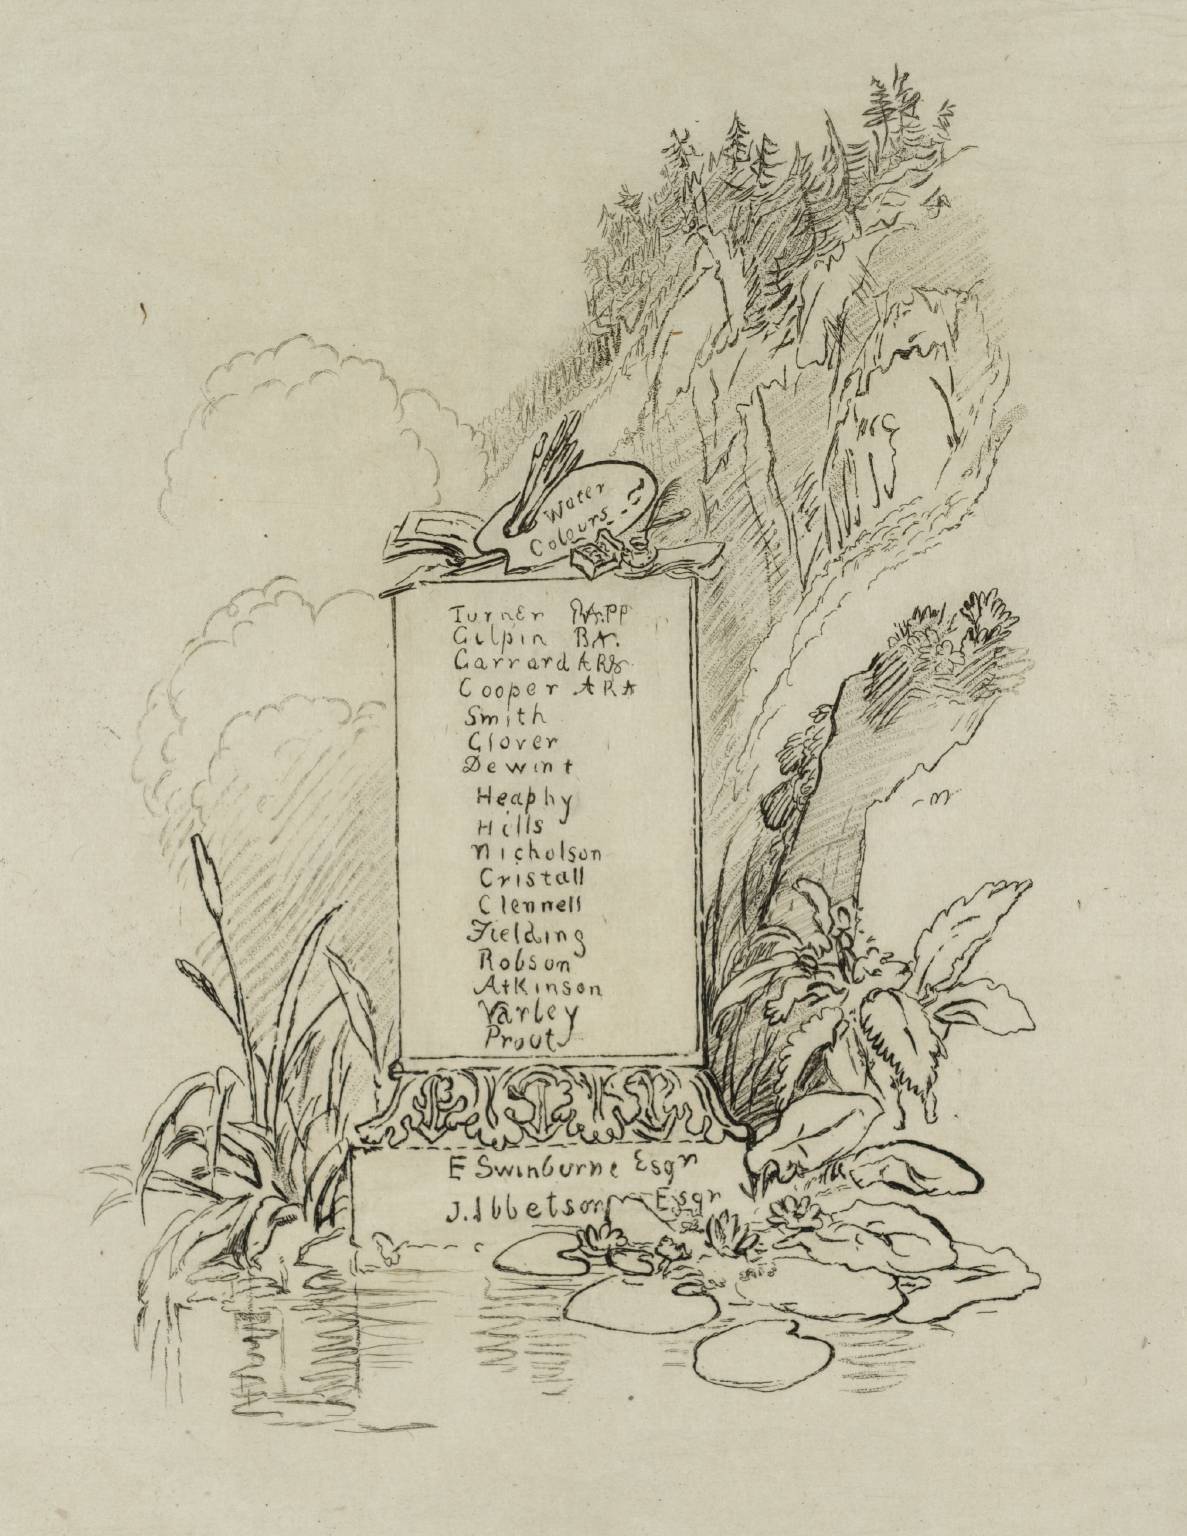 Water
Colours
Turner RA.PP
Gilpin RA.
Garrard ARA
Cooper ARA
Smith
Glover
Dewint
Heaphy
Hills
Nicholson
Cristall
Clennell
Fielding
Robson
Atkinson
Varley
Prout
E Swinburne Esqr
J. Ibbetson Esqr